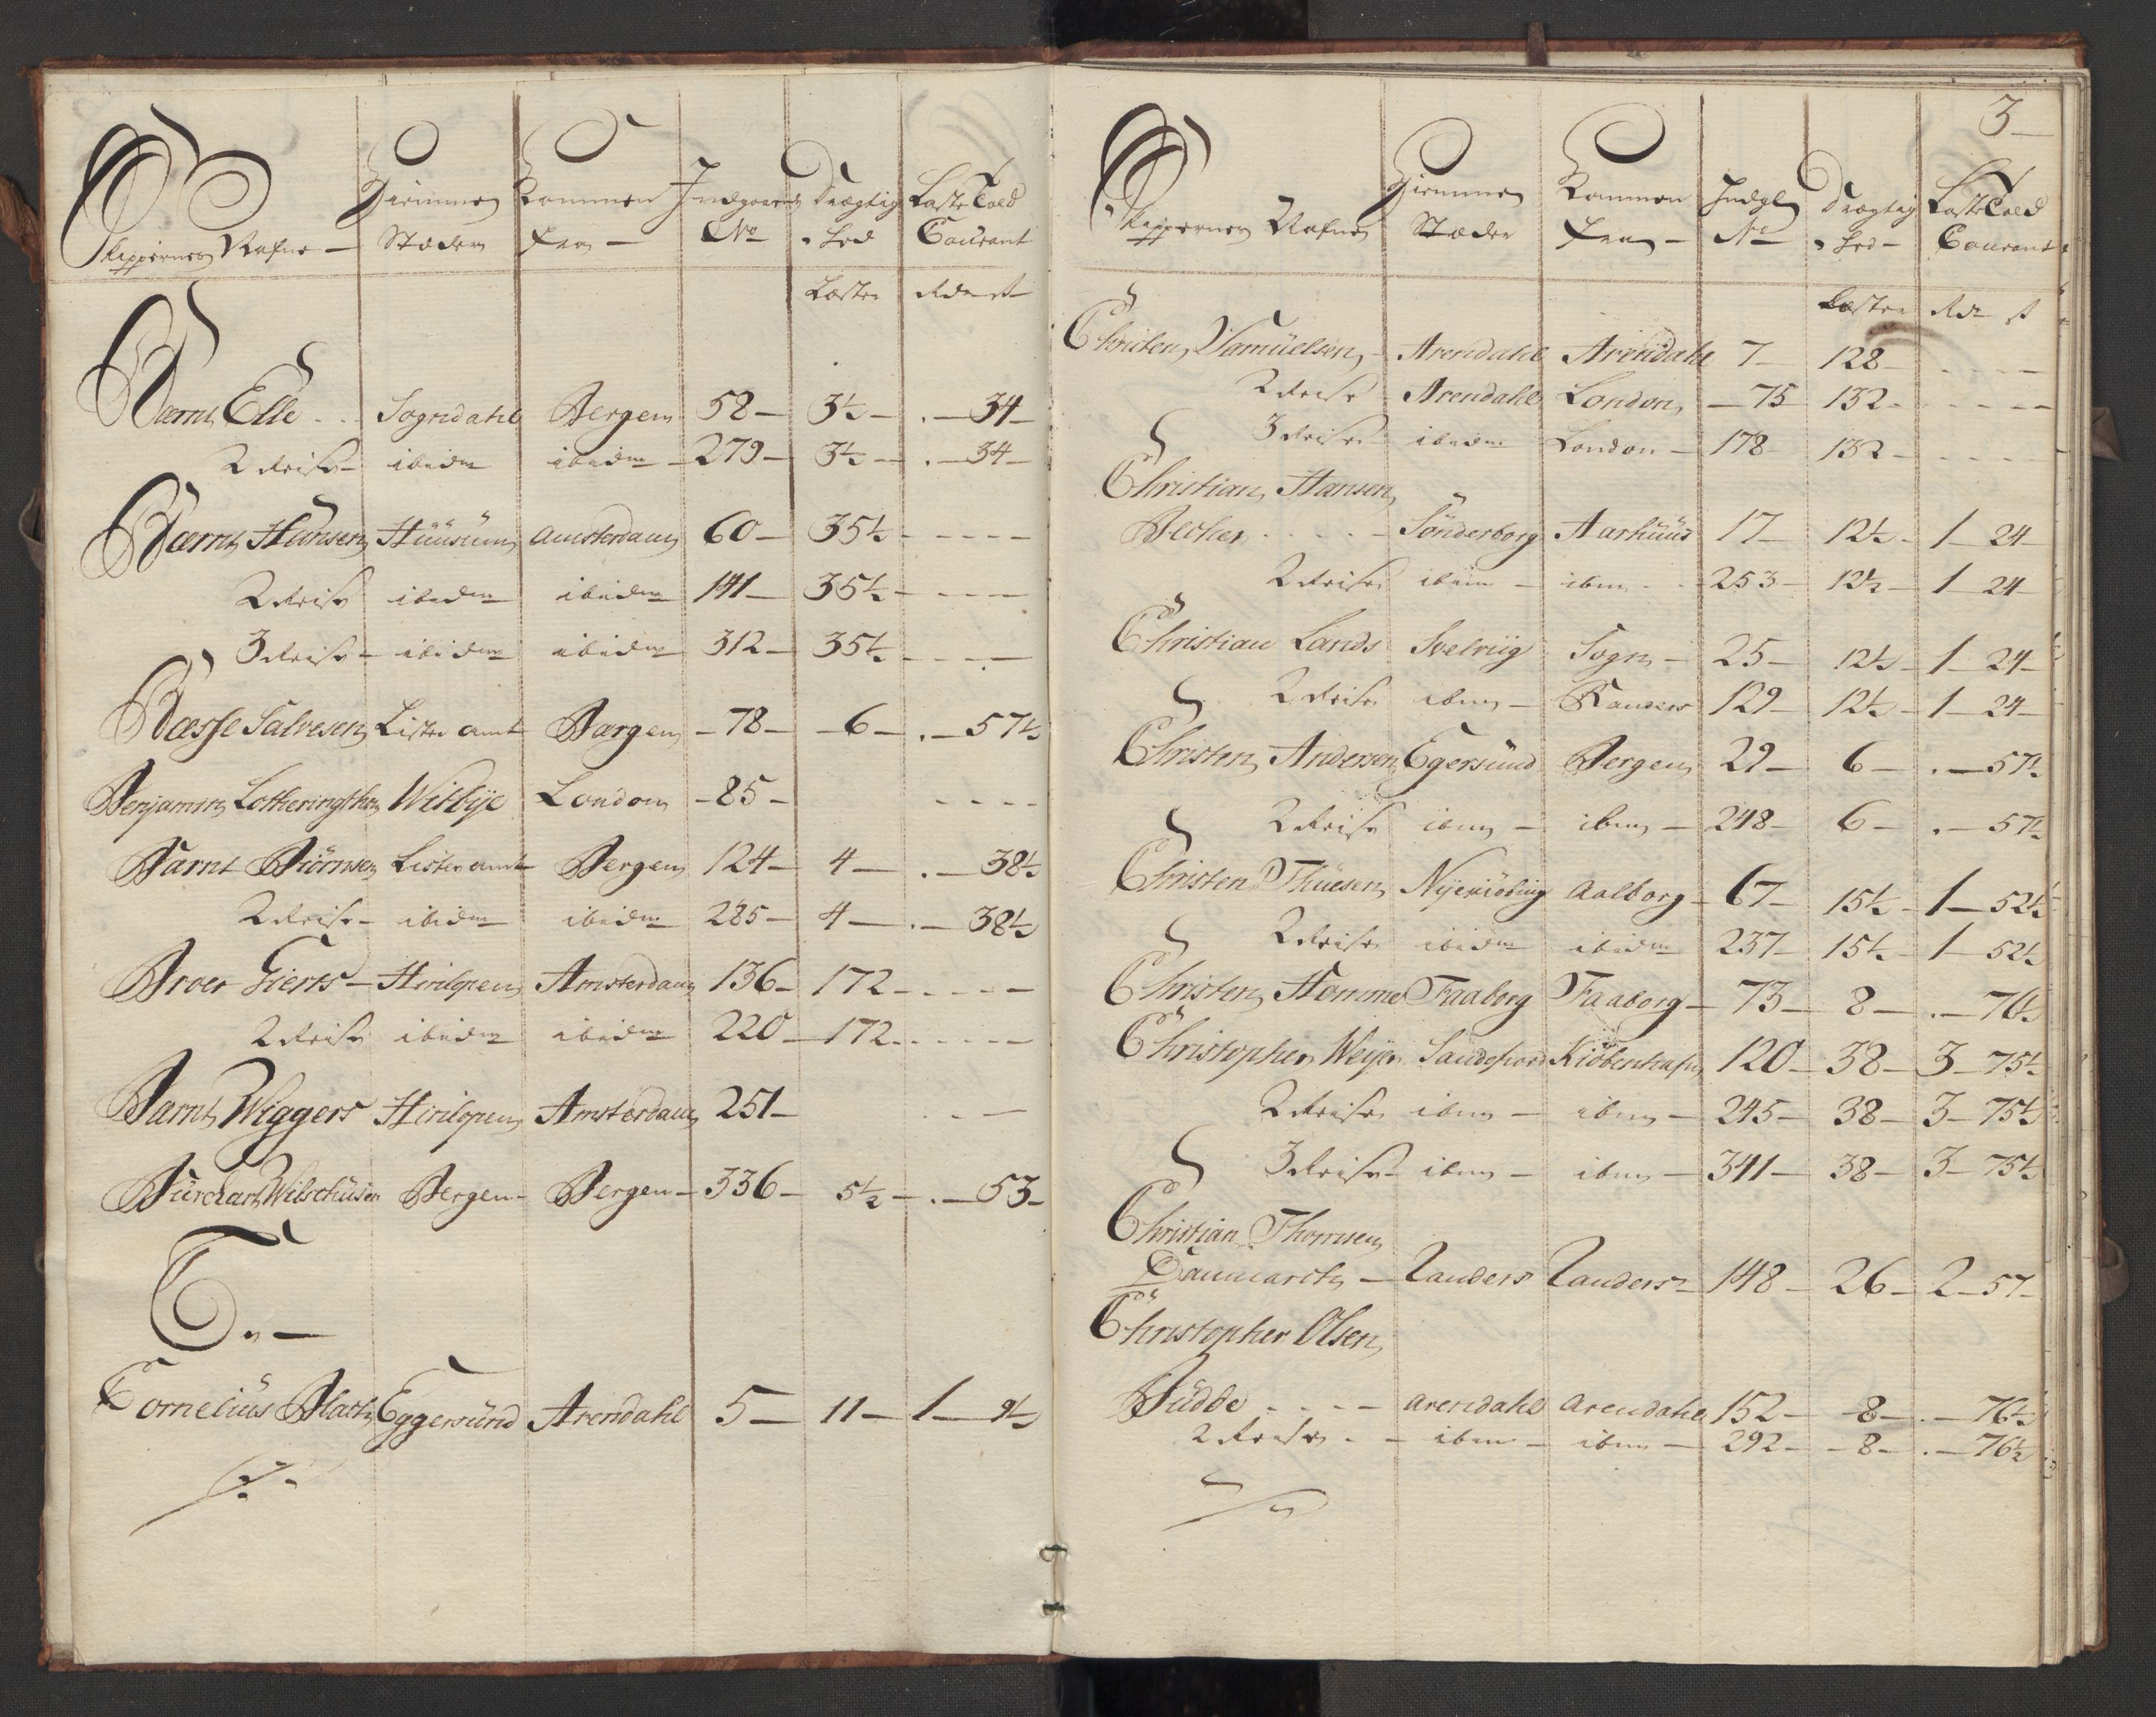 Skippernes Nafne — Hiemmen Stæder Kommen Fra — Indgaaende No Drægtighed Læste Told Courant
Læster Rdr ß
Bærnt Elle . . Sogndahl Bergen 58 — 3½ — . — 34 —
2 Reise — ibidm ibidm — 279 — 3½ — . — 34 —
Bærnt Hansen Huusum Amsterdam 60 — 35½ - - - -
2 Reise ibidm ibidm 141 — 35½ - - - -
3 Reise — ibidm ibidm 312 — 35½ - - - -
Basse Salvesen Lister amt Bargen — 78 — 6 — . — 57½
Benjamin Whitbye London — 85 — - - - -
Barnt Biörnsen Lister amt Bergen 124 — 4 — . — 38½
2 Reise — ibidm ibidm 285 — 4 — . — 38½
Broer Gierts — Hinlopen Amsterdam 136 — 172 - - - -
2 Reise ibidm ibidm 220 — 172 - - - -
Barnt Wiggers Hinlopen Amsterdam 251 — - - -
Burchart Wilschusen Bergen — Bergen — 336 — 5½ — . — 53 —
C. —
Cornelius Plath Eggersund Arendahl 5 — 11 — 1 — 9½
3 —
Skippernes Nafne Hiemmen Stæder Kommen Fra — Indg No Drægtighed — Læste Told Courant
Læster Rdr ß
Christen Samuelsen — Arendahl Arendahl 7 — 128 — - - - -
2 Reise Arendahl London — 75 132 - - - -
3 Reise — ibidm London — 178 132 - - - -
Christian Hansen
Becker . . . . Sönderborg Aarhuus 17 — 12½ — 1 — 24 —
2 Reise ibm — ibm — 253 — 12½ — 1 — 24 —
Christian Lands Svelviig Sogn — 25 — 12½ — 1 — 24 —
2 Reise ibm — Randers 129 — 12½ — 1 — 24 —
Christen Andersen Egersund Bergen 29 — 6 — . — 57½
2 Reise ibm — ibm — 248 — 6 — . — 57½
Christen Thuesen Nyekiöbing Aalborg — 67 — 15½ — 1 — 52½
2 Reise ibidm ibidm 237 — 15½ — 1 — 52½
Christen Homme Faaborg Faaborg — 73 — 8 — . — 76½
Christopher Weyer Sandefiord Kiöbenhafn 120 — 38 — 3 — 75½
2 Reise ibm — ibm — 245 — 38 — 3 — 75½
3 Reise — ibm — ibm — 341 — 38 — 3 — 75½
Christian Thomsen
Danmarch — Randers Randers — 148 — 26 — 2 — 57 —
Christopher Olsen
Budde . . . . Arendahl Arendahl 152 — 8 — . — 76½
2 Reise . — ibm — ibm — 292 — 8 — . — 76½